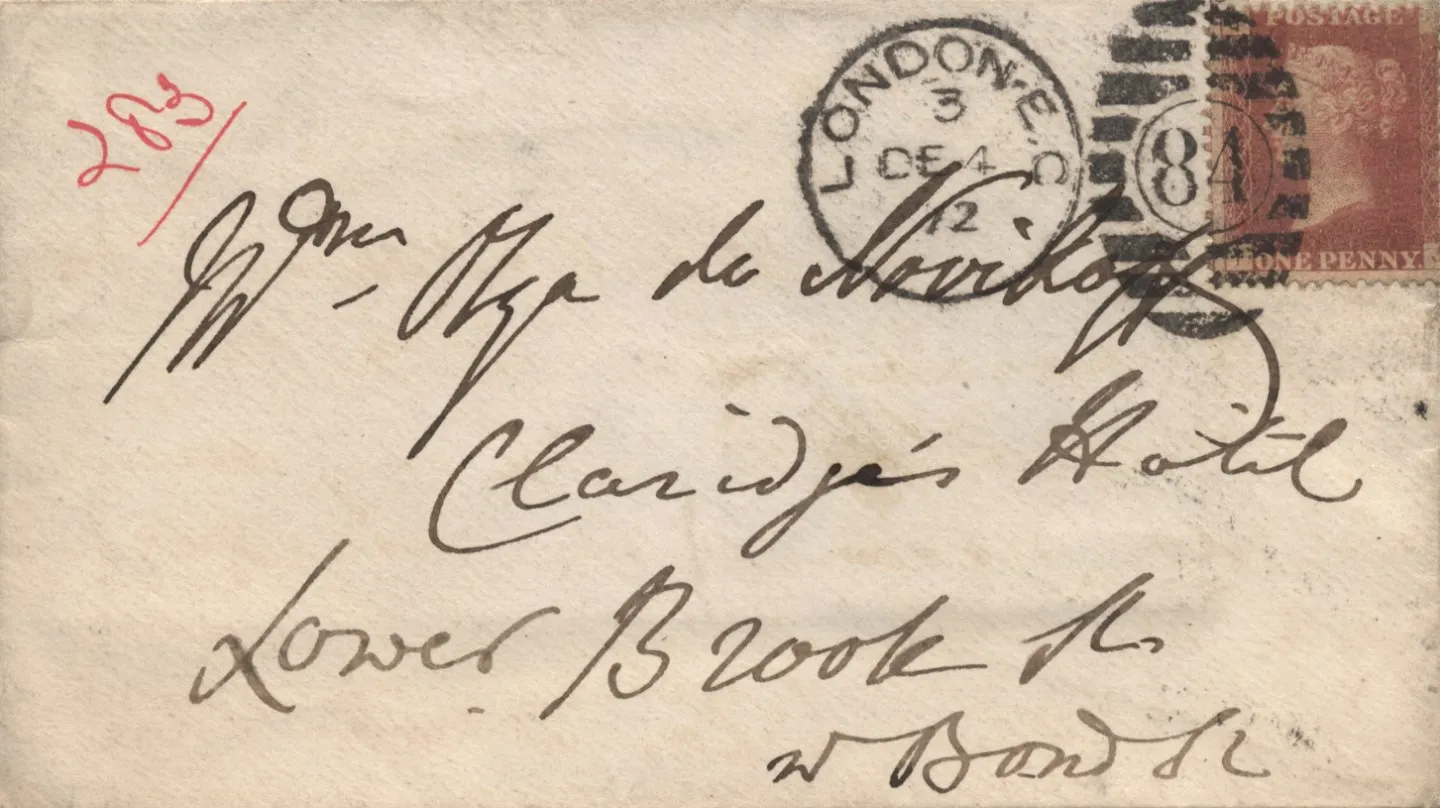 LONDON·E.C
3
DE 4
72
84
POSTAGE
ONE PENNY
283/
Mme Olga de Novikoff
Claridge's Hotel
Lower Brook St.
Bond St